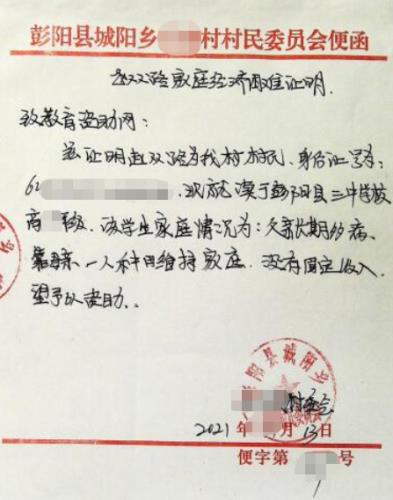 彭阳县城阳乡 村村民委员会便函
赵双路家庭经济困难证明.
致教育资助网:
兹证明赵双路为我村村民、身份证号为:
62 ,现就读于彭阳县三中学校
高 级,该学生家庭情况为:父亲长期患病、
靠母亲一人种田维持家庭.没有固定收入,
望予以资助.
彭阳县城阳乡
村委会
2021年 月13日
便字第 号